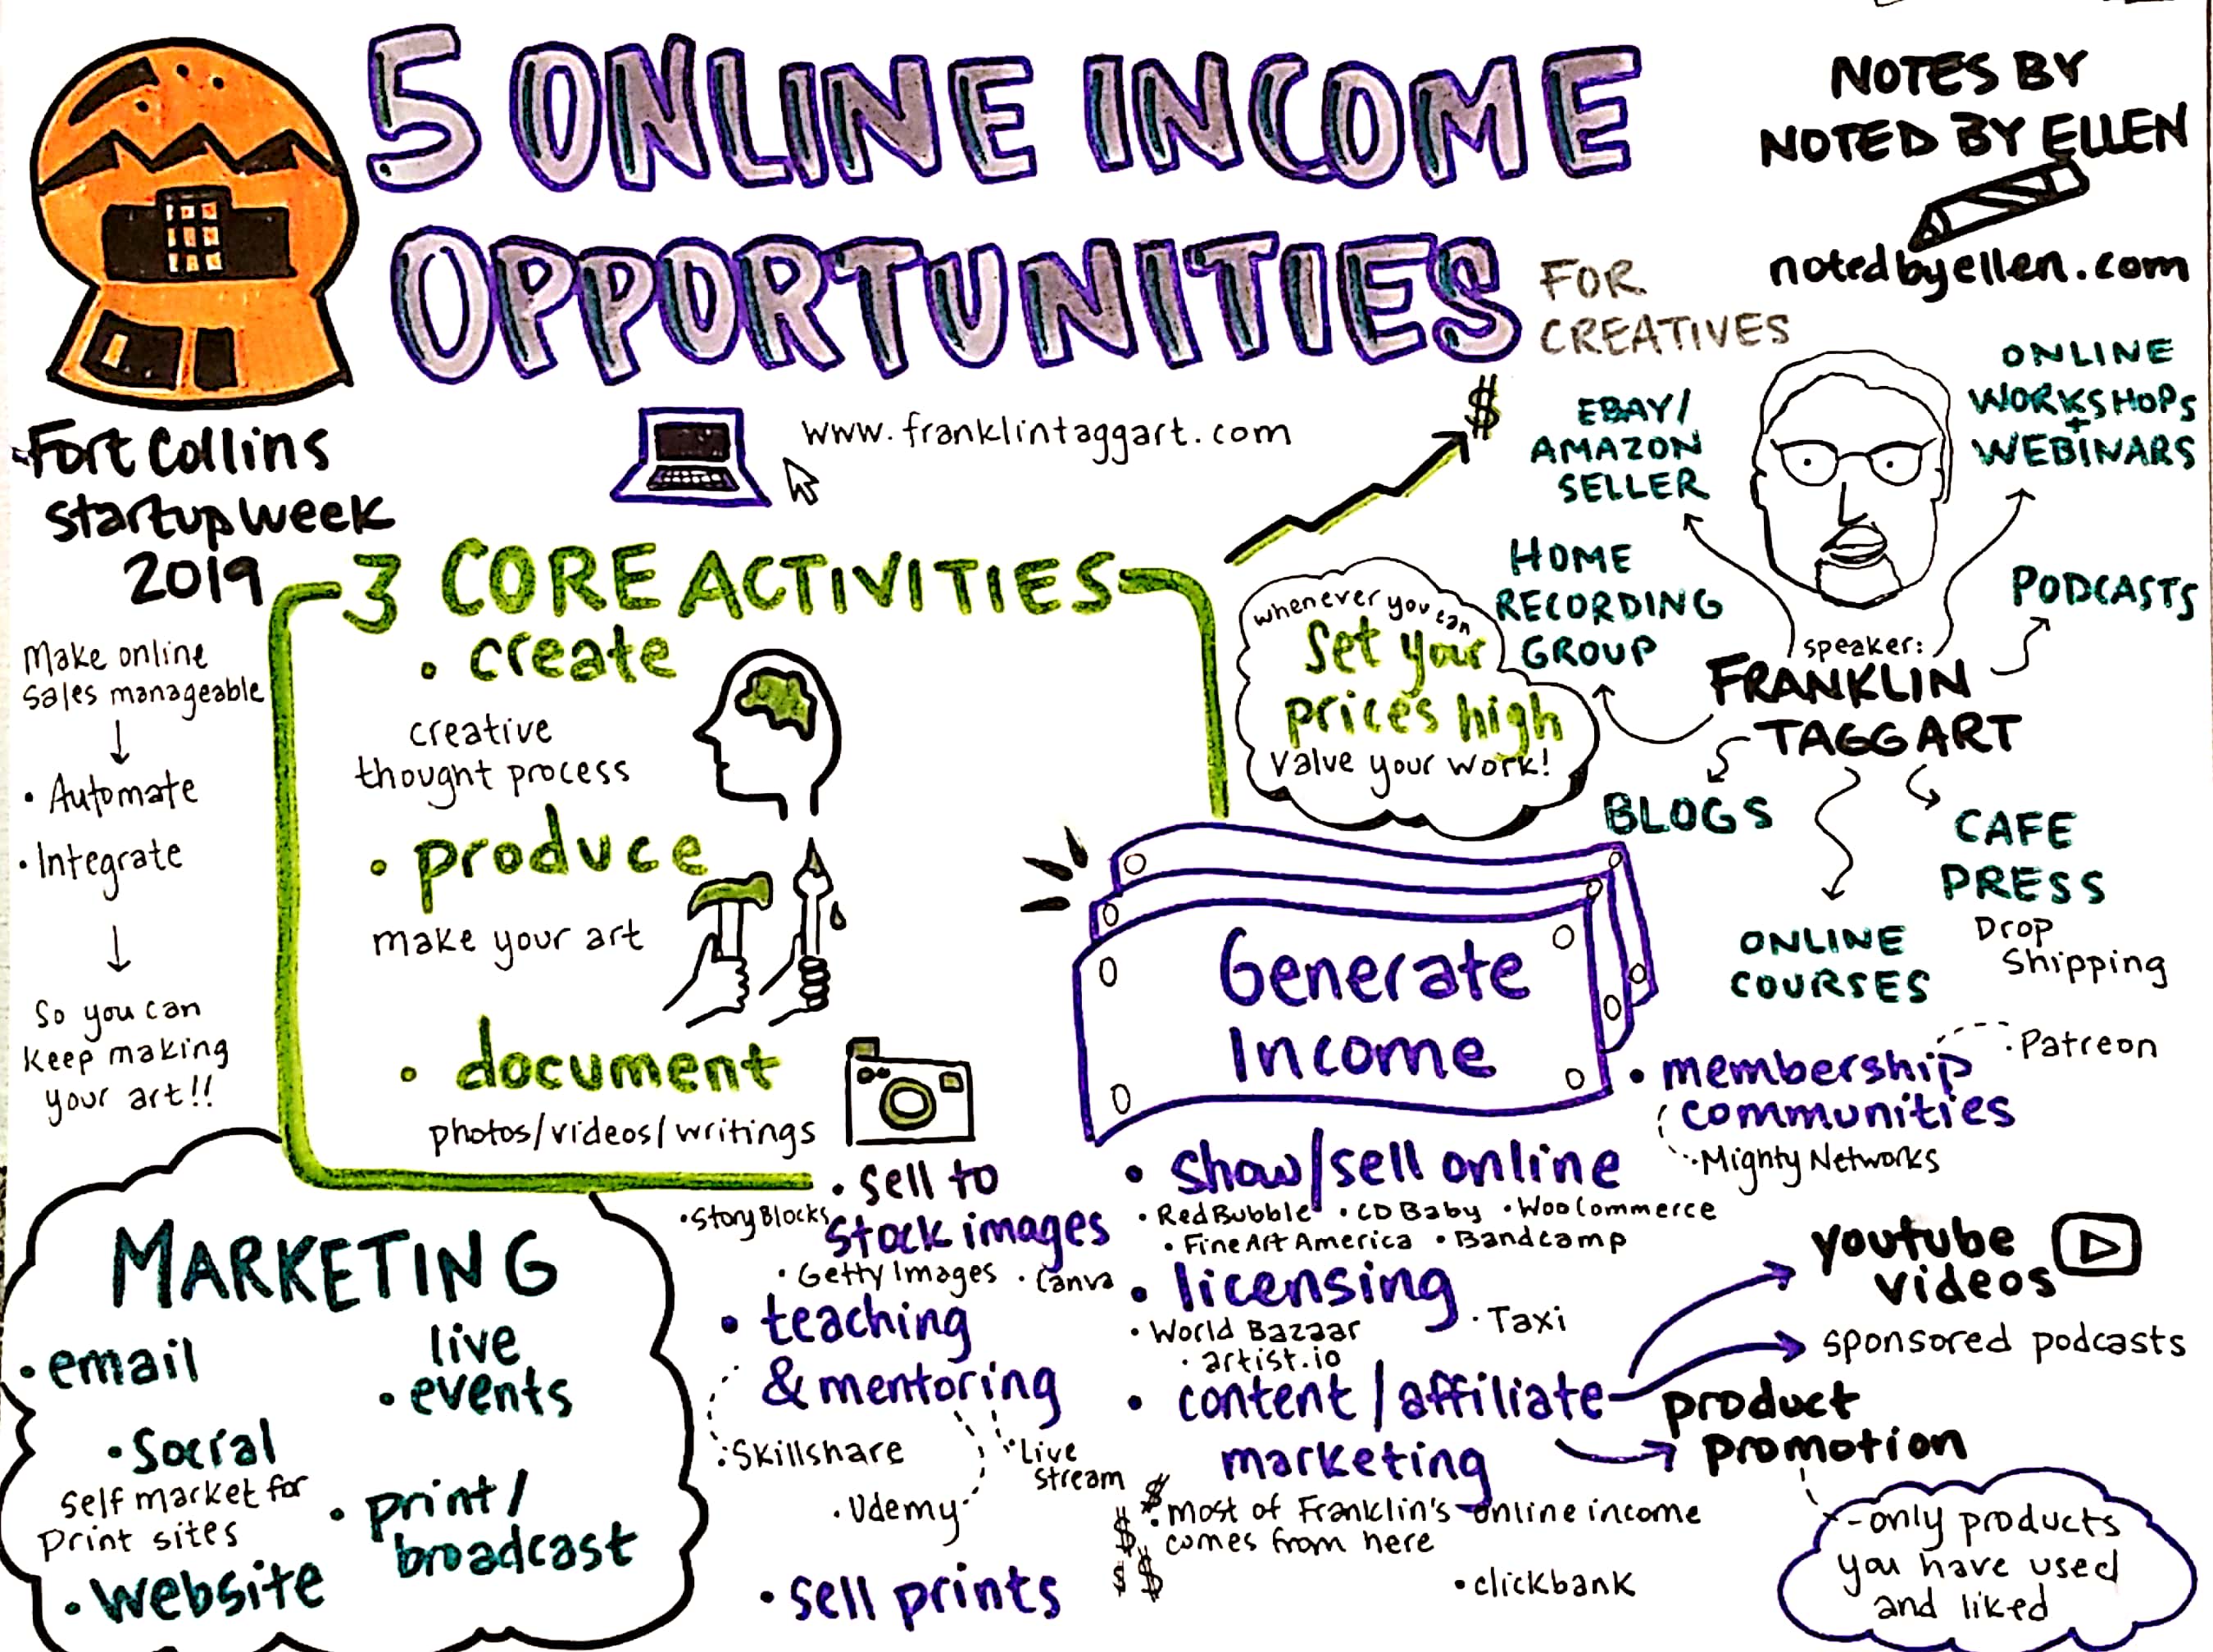 5 ONLINE INCOME
OPPORTUNITIES
FOR
CREATIVES
NOTES BY
NOTED BY ELLEN
notedbyellen.com
Fort Collins
startupweek
2019
www.franklintaggart.com
$
EBAY/
AMAZON
SELLER
ONLINE
WORKSHOPS
+
WEBINARS
HOME
RECORDING
GROUP
PODCASTS
speaker:
FRANKLIN
TAGGART
BLOGS
CAFE
PRESS
Drop
Shipping
ONLINE
COURSES
whenever you can
Set your
prices high
Value your work!
Make online
Sales manageable
• Automate
• Integrate
So you can
keep making
your art!!
3 CORE ACTIVITIES
• create
creative
thought process
• produce
make your art
• document
photos/videos/writings
Generate
Income
• membership
communities
• Patreon
• Mighty Networks
• show/sell online
• RedBubble • CD Baby • WooCommerce
• Fine Art America • Bandcamp
• sell to
stock images
• StoryBlocks
• Getty Images • Canva
• licensing
• World Bazaar
• Taxi
• artist.io
• teaching
& mentoring
• Skillshare
• Live
Stream
• Udemy
• sell prints
• content/affiliate
marketing
$ $ $ $
• most of Franklin's online income
comes from here
• clickbank
youtube
videos
sponsored podcasts
product
promotion
- only products
you have used
and liked
MARKETING
• email
live
• events
• Social
Self market for
Print sites
• print/
broadcast
• website